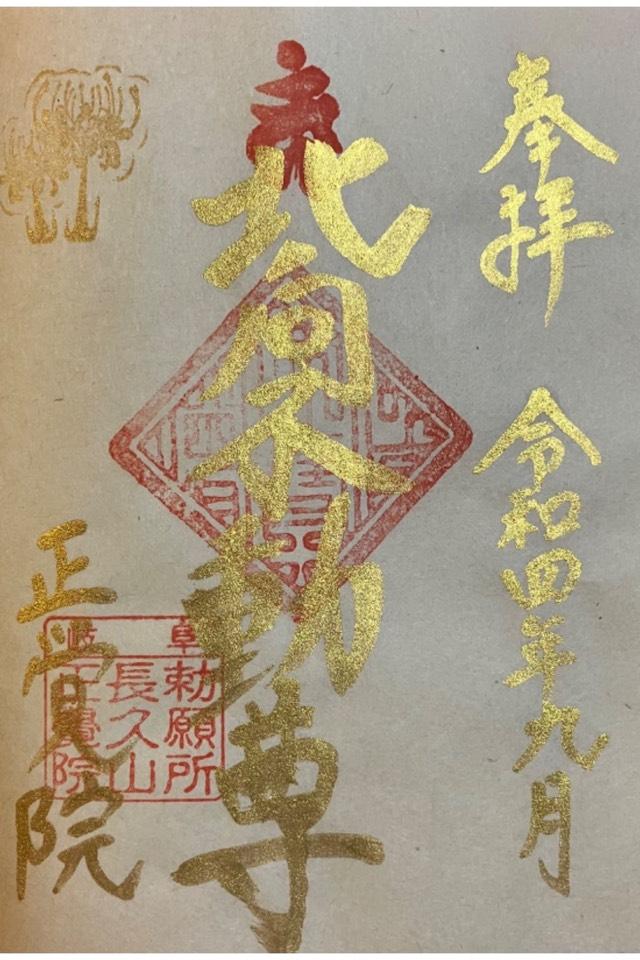 奉拝
令和四年九月
北向不動尊
正覚院
勅願所
長久山
正覺院